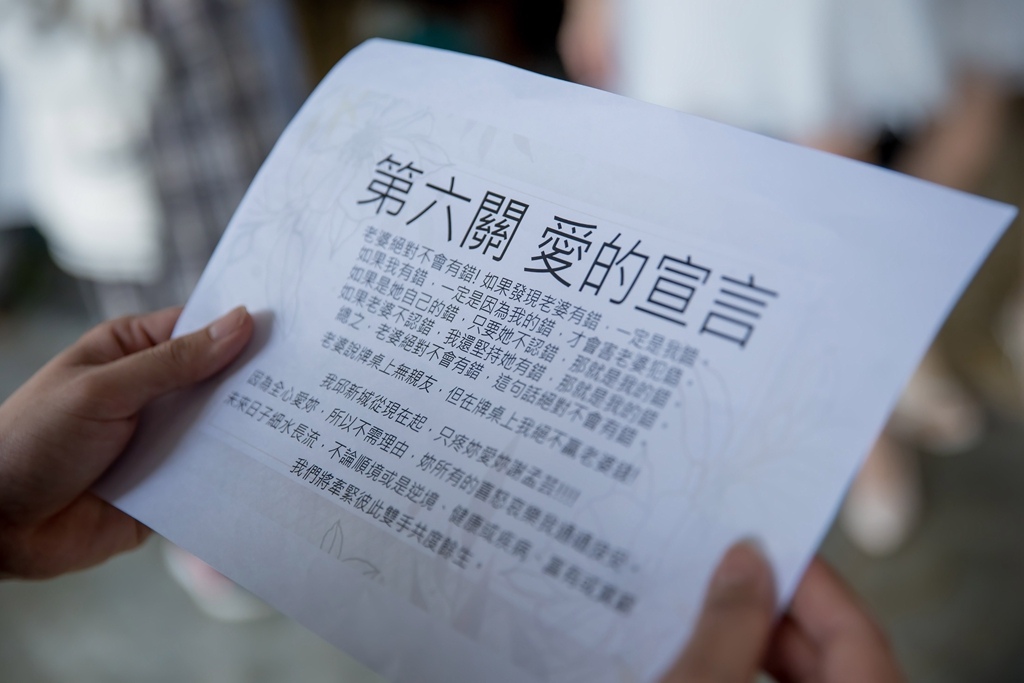 第六關 愛的宣言
老婆絕對不會有錯!如果發現老婆有錯，一定是我錯，
如果我有錯，一定是因為我的錯，才會害老婆犯錯，
如果是她自己的錯，只要她不認錯，那就是我的錯，
如果老婆不認錯，我還堅持她有錯，那就是我的錯，
總之，老婆絕對不會有錯，這句話絕對不會有錯，
老婆說牌桌上無親友，但在牌桌上我絕不贏老婆錢!
我邱新城從現在起，只疼妳愛妳謝孟芸!!!!!
因為全心愛妳，所以不需理由，妳所有的喜怒哀樂我通通接受，
未來日子細水長流，不論順境或是逆境，健康或疾病，富有或貧窮
我們將牽緊彼此雙手共度餘生。